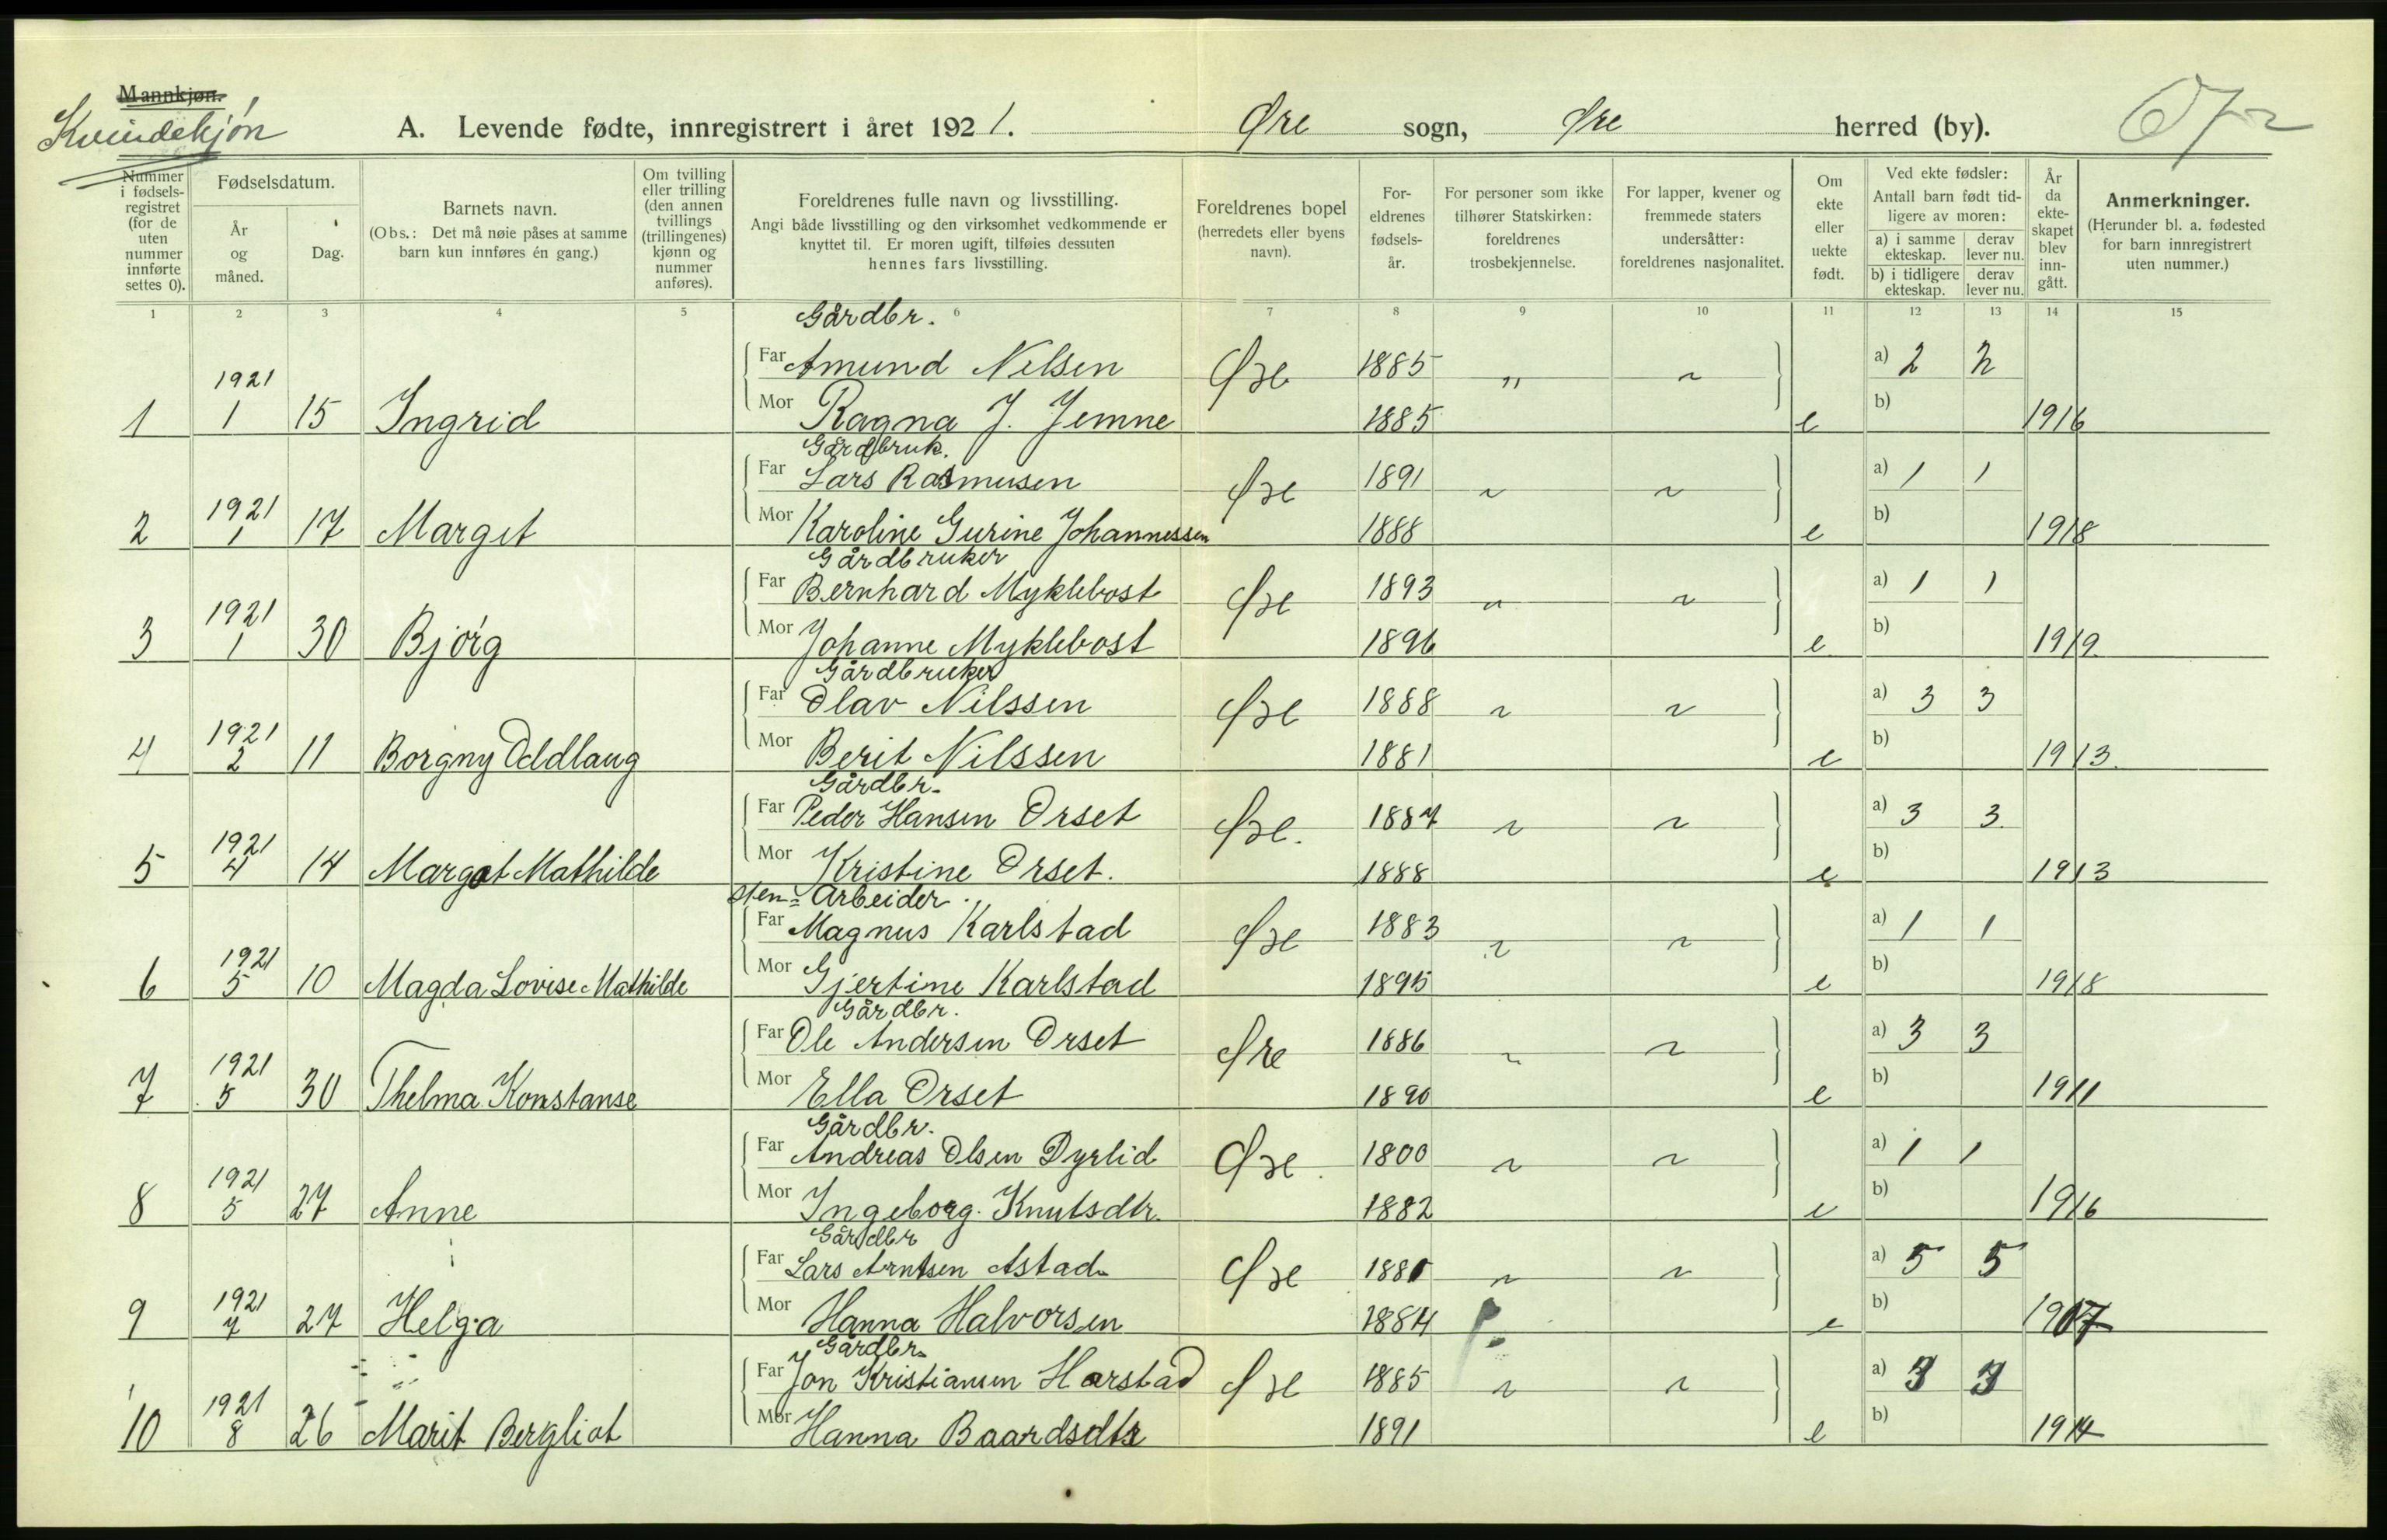 Mannkjøn.
Kvindekjón
A. Levende fødte, innregistrert i året 1921. Øre sogn, Øre herred (by).
Nummer i fødsels-registret (for de uten nummer innførte settes 0).
Fødselsdatum.
År og måned.
Dag.
Barnets navn.
(Obs.: Det må nøie påses at samme barn kun innføres én gang.)
Om tvilling eller trilling (den annen tvillings (trillingenes) kjønn og nummer anføres).
Foreldrenes fulle navn og livsstilling.
Angi både livsstilling og den virksomhet vedkommende er knyttet til. Er moren ugift, tilføies dessuten hennes fars livsstilling.
Foreldrenes bopel (herredets eller byens navn).
For-eldrenes fødsels-år.
For personer som ikke tilhører Statskirken: foreldrenes trosbekjennelse.
For lapper, kvener og fremmede staters undersåtter: foreldrenes nasjonalitet.
Om ekte eller uekte født.
Ved ekte fødsler:
Antall barn født tid-ligere av moren:
a) i samme ekteskap. derav lever nu.
b) i tidligere ekteskap. derav lever nu.
År da ekte-skapet blev inn-gått.
Anmerkninger.
(Herunder bl. a. fødested for barn innregistrert uten nummer.)
1 2 3 4 5 6 7 8 9 10 11 12 13 14 15
Gårdbr.
Far Amund Nilsen Øre 1885 " a) 2 2
1 1921 1 15 Ingrid Mor Ragna J. Jemne 1885 e b) 1916
Gårdbruk.
Far Lars Rasmusen Øre 1891 a) 1 1
2 1921 1 17 Margit Mor Karoline Gurine Johannessen 1888 e b) 1918
Gårdbruker
Far Bernhard Myklebost Øre 1893 a) 1 1
3 1921 1 30 Bjórg Mor Johanne Myklebost 1896 e b) 1919
Gårdbruker
Far Olav Nilssen Øre 1888 a) 3 3
4 1921 2 11 Borgny Oddlaug Mor Berit Nilssen 1881 e b) 1913.
Gårdbr.
Far Peder Hansen Orset Øre. 1887 a) 3 3.
5 1921 4 14 Margot Mathilde Mor Kristine Orset. 1888 e b) 1913
Sten=Arbeider.
Far Magnus Karlstad Øre 1883 a) 1 1
6 1921 5 10 Magda Lovise Mathilde Mor Gjertine Karlstad 1895 e b) 1918
Gårdbr.
Far Ole Andersen Orset Øre 1886 a) 3 3
7 1921 5 30 Thelma Konstanse Mor Ella Orset 1890 e b) 1911
Gårdbr.
Far Andreas Olsen Dyrlid Øre. 1800 a) 1 1
8 1921 5 27 Anne Mor Ingeborg Knutsdtr. 1882 e b) 1916
Gårdbr
Far Lars Arntsen Astad Øre a) 5 5
9 1921 7 27 Helga Mor Hanna Halvorsen 1884 e b) 1907
Gårdbr.
Far Jon Kristiansen Harstad Øre 1885 a) 3 3
10 1921 8 26 Marit Bergliot Mor Hanna Baardsdtr 1891 e b) 1914